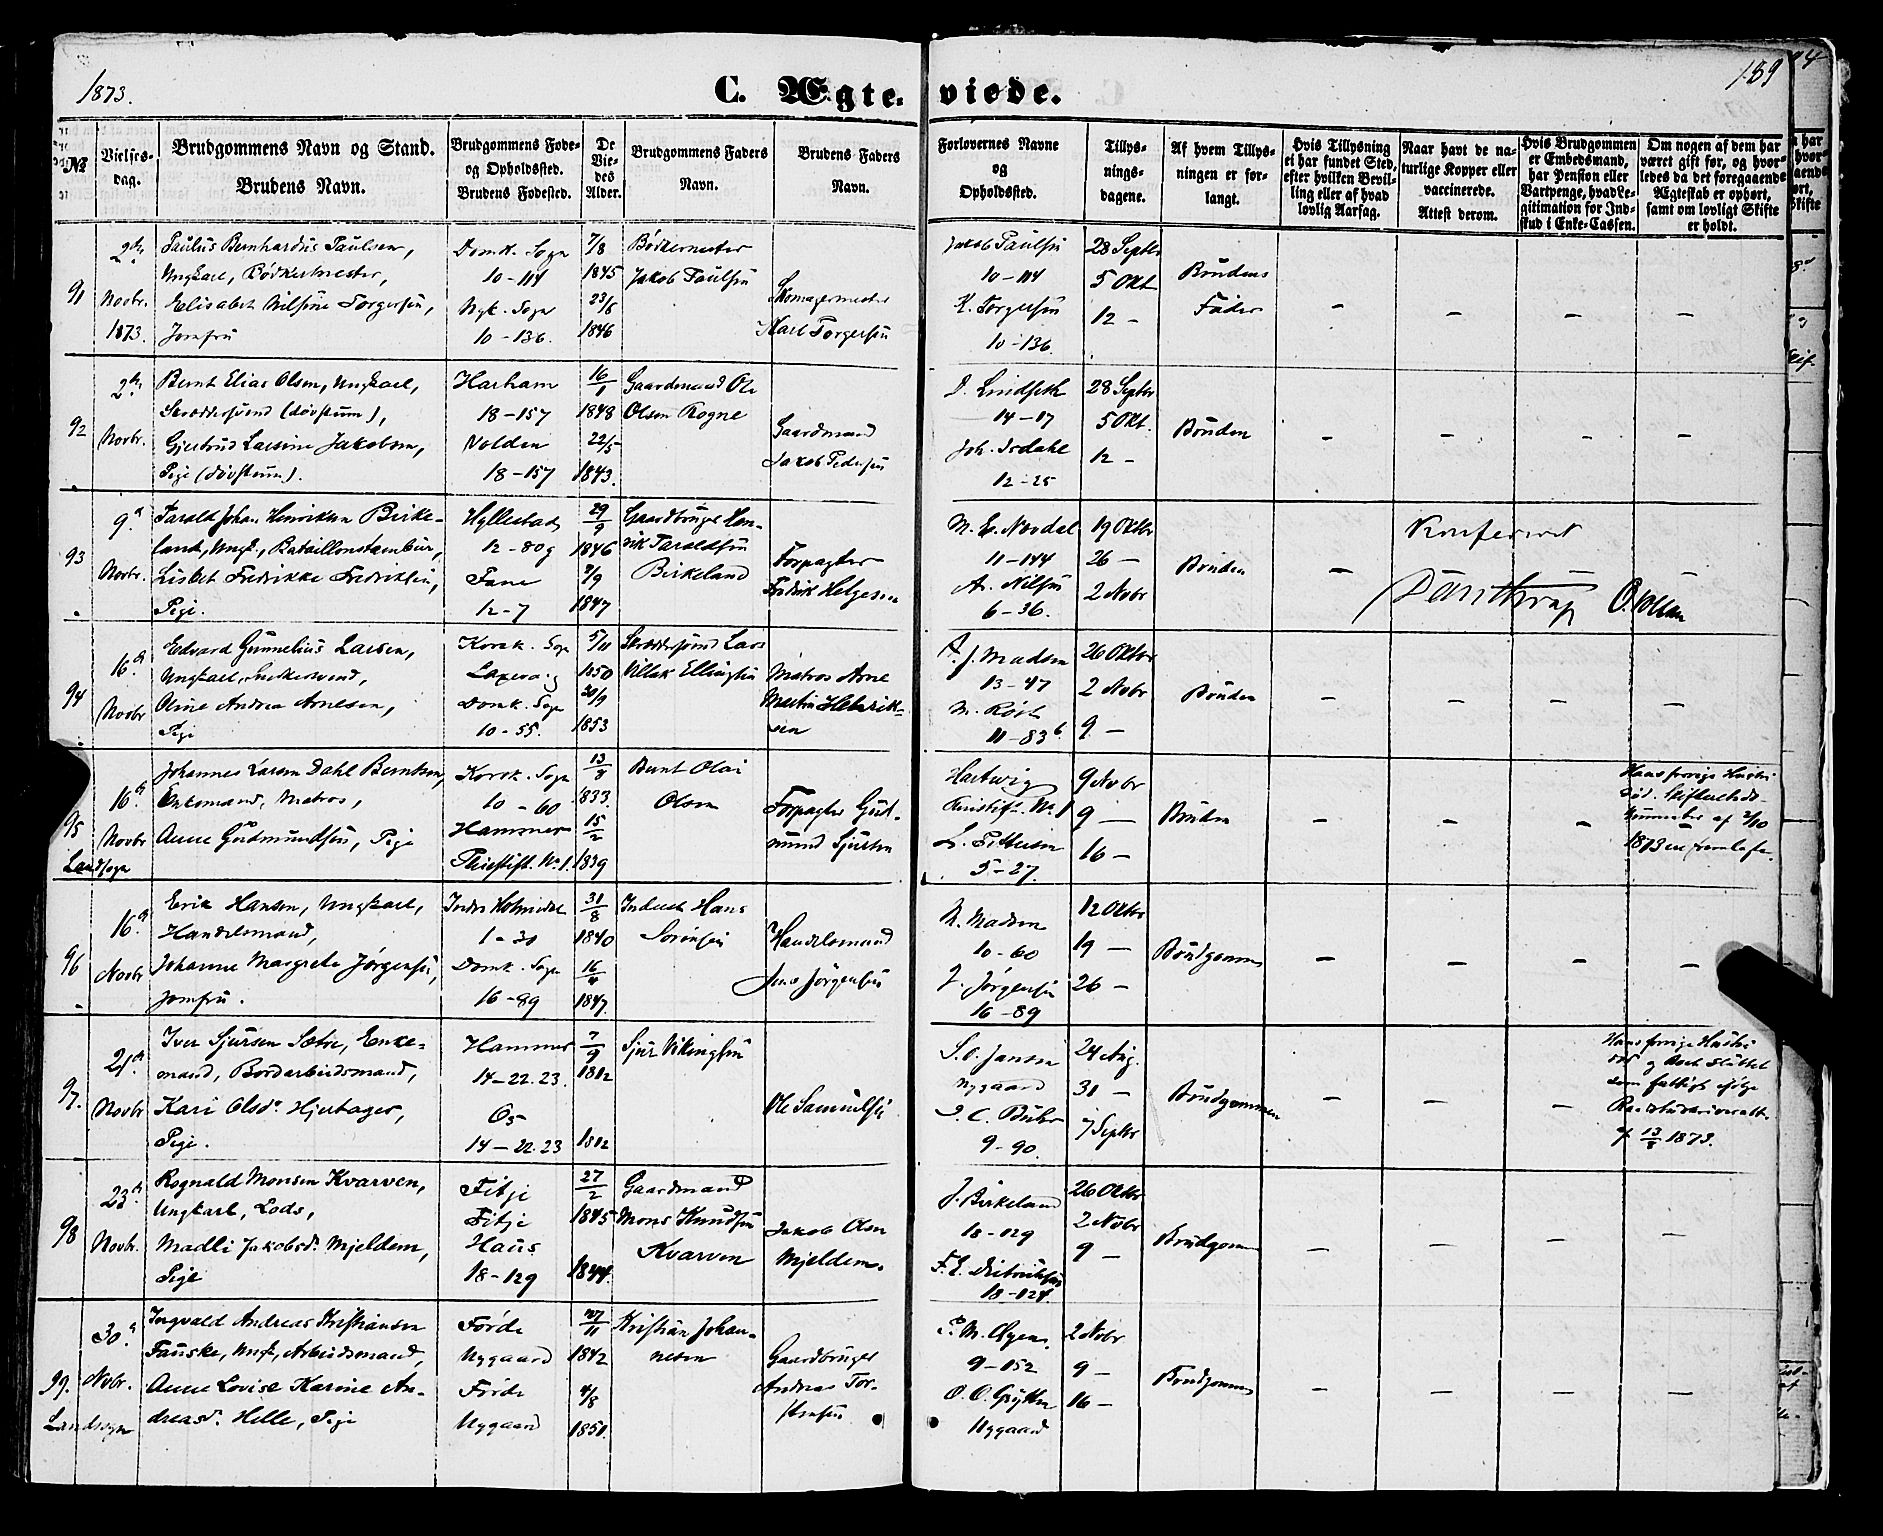 1873.
C. Ægteviede.
189
№
Vielses-
dag.
Brudgommens Navn og Stand.
Brudens Navn.
Brudgommens Føde-
og Opholdssted.
Brudens Fødested.
De
Vie-
des
Alder.
Brudgommens Faders
Navn.
Brudens Faders
Navn.
Forlovernes Navne
og
Opholdssted.
Tillys-
nings-
dagene.
Af hvem Tillys-
ningen er for-
langt.
Hvis Tillysning
ei har fundet Sted,
efter hvilken Bevil-
ling eller af hvad
lovlig Aarsag.
Naar havt de na-
turlige Kopper eller
vaccinerede.
Attest derom.
Hvis Brudgommen
er Embedsmand,
har Pension eller
Vartpenge, hvad Le-
gitimation for Ind-
skud i Enke-Cassen.
Om nogen af dem har
været gift før, og hvor-
ledes da det foregaaende
Ægteskab er ophørt,
samt om lovligt Skifte
er holdt.
91
2den
Novbr.
1873.
Paulus Bernhardus Paulsen,
Ungkarl, Bødkermester,
Elisabet Nilsine Torgersen,
Jomfru
Domk. Sogn
10-114
Nyk. Sogn
10-136.
7/8
1845
23/8
1846
Bödkermester
Jakob Paulsen
Skomagermester
Karl Torgersen
Jakob Paulsen
10-114
K. Torgersen
10-136
28 Septbr
5 Okt
12 -
Brudens
Fader
- - - -
92
2den
Novbr.
Bernt Elias Olsen, Ungkarl,
Skræddersvend (døvstum),
Gjertrud Larsine Jakobsen,
Pige (døvstum).
Harham
18-157
Volden
18-157
16/1
1848
22/5
1843.
Gaardmand Ole
Olsen Rogne
Gaardmand
Jakob Pedersen
D. Lindseth
14-17
Joh. Isdahl
12-25
28 Septbr
5 Okt.
12 -
Bruden
- - - -
93
9de
Novbr.
Tarald Johan Henriksen Birke-
land, Ungk., Bataillonstambur,
Lisbet Fredrikke Fredriksen,
Pige.
Hyllestad
12-80g
Fane
12-7
29/9
1846
2/9
1847
Gaardbruger Hen-
rik Taraldsen
Birkeland
Forpagter
Fredrik Helgesen
M. E. Nordal
11-144
A. Nilsen
6-36.
19 Oktbr
26 -
2 Novbr
Bruden
-
Konfereret
94
16de
Novbr
Edvard Gunnelius Larsen,
Ungkarl, Snedkersvend,
Oline Andrea Arnesen,
Pige
Korsk. Sogn
Laxevaag
Domk. Sogn
10-55.
5/11
1850
20/9
1853
Skræddersvend Lars
Villak Ellingsen
Matros Arne
Martin Henrik-
sen
A. J. Madsen
13-47
M. Røst
11-83b
26 Oktbr
2 Novbr
9 -
Bruden
- - - -
95
16de
Novbr
Landsogn
Johannes Larsen Dahl Berntsen,
Enkemand, Matros,
Anne Gudmundsen, Pige
Korsk. Sogn
10-60
Hammer
13/8
1833.
15/2
1839
Bernt Olai
Olsen
Forpagter Gud-
mund Sjursen
Hartwig
9
5-27.
9 Novbr
9 -
16 -
Bruden
- - -
Hans forrige Hustru
død. Skifterets do-
kument af 2/10
1873 er fremlagt.
96
16de
Novbr
Erik Hansen, Ungkarl,
Handelsmand,
Johanne Margrete Jørgensen,
Jomfru.
Indre Holmedal
1-30
Domk. Sogn
16-89
31/8
1840
16/4
1847.
Inderst Hans
Sörensen
Handelsmand
Jens Jørgensen
N. Madsen
10-60
J. Jörgensen
16-89
12 Oktbr
19 -
26 -
Brudgommen
- - - -
97.
21de
Novbr
Iver Sjursen Sætre, Enke-
mand, Bordarbeidsmand,
Kari Olsdr. Hjertager,
Pige.
Hammer
14-22.23.
Os
14-22.23
7/9
1812
1812
Sjur Vikingsen
Ole Samuelsen
S. O. Jansen
Nygaard
9-90.
24 Aug.
31 -
7 Septbr
Brudgommen
- - -
Hans forrige Hustru
død og Boet sluttet
som fattigt ifølge
af 13/8 1873.
98
23de
Novbr.
Rognald Monsen Kvarven,
Ungkarl, Lods,
Madli Jakobsdr. Mjeldem,
Pige
Fitje
Fitje
Haus
18-129
27/2
1845
1844.
Gaardmand
Mons Knudsen
Kvarven
Jakob Olsen
Mjeldem.
J. Birkeland
18-129
F. E. Didriksen
18-124.
26 Oktbr
2 Novbr
9 -
Brudgommen
- - - -
99.
30de
Novbr.
Landsogn
Ingvald Andreas Kristiansen
Fauske, Ungk., Arbeidsmand,
Anne Lovise Karine An-
dreasdr. Helle, Pige
Førde
Nygaard
Førde
Nygaard
27/11
1842
4/8
1851.
Kristian Johan-
nesen
Gaardbruger
Andreas Tor-
stensen
P. M. Øyen
9-152
O. O. Grytten
Nygaard
2 Novbr
9 -
16 -
Brudgommen
- - - -